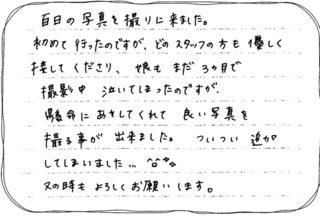 百日の写真を撮りに来ました。
初めて行ったのですが、どのスタッフの方も優しく
接してくださり、娘もまだ3ヶ月で
撮影中 泣いてしまったのですが、
懸命にあやしてくれて 良い写真を
撮る事が 出来ました。 ついつい 追加
してしまいました…
又の時も よろしくお願いします。